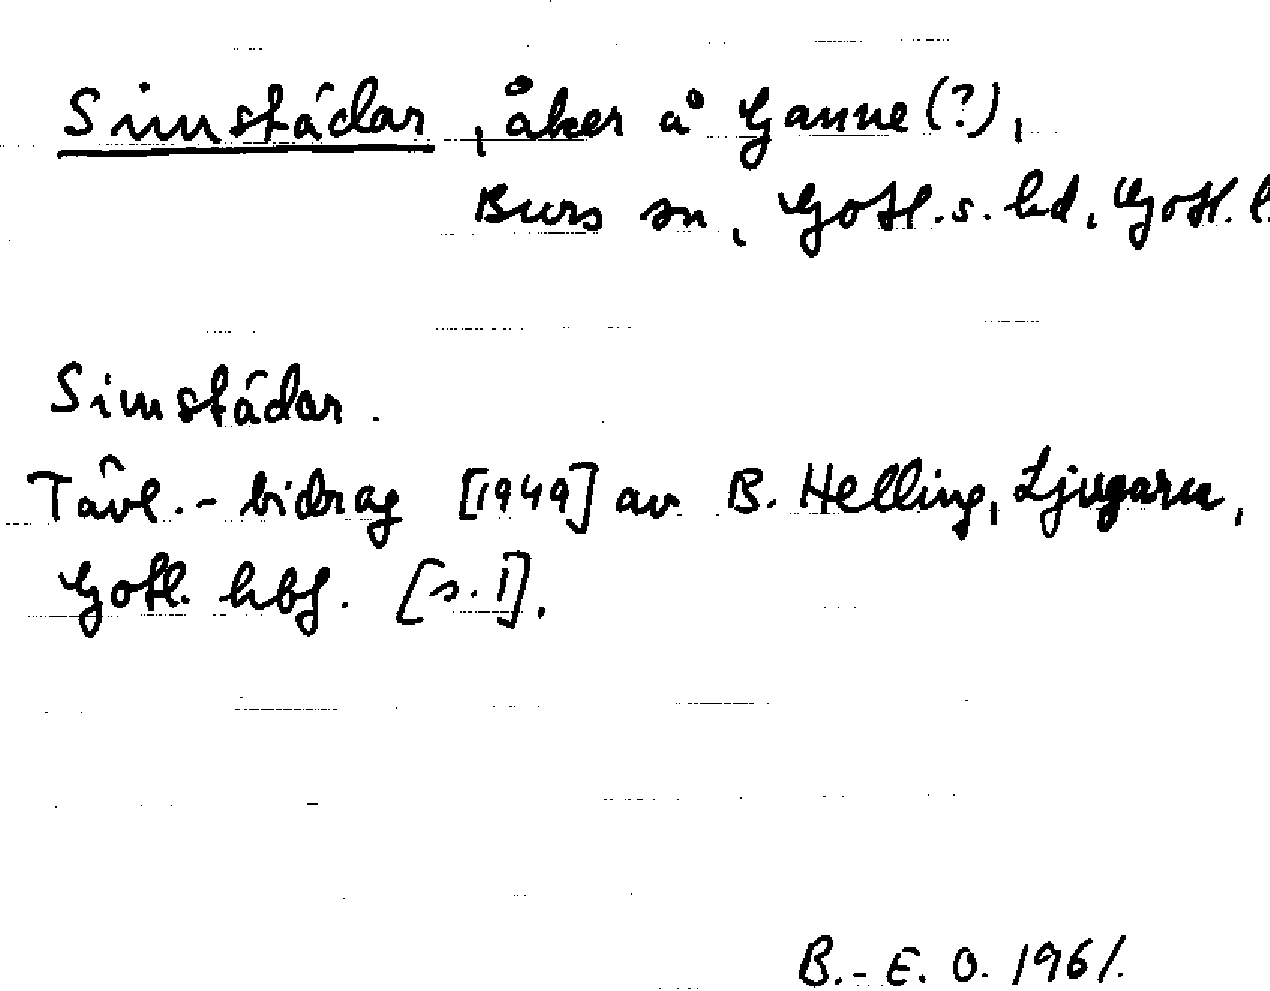 Simstádar, åker å Ganne (?),
Burs sn, Gotl. s. hd, Gotl. l.
Simstádar.
Tävl.-bidrag [1949] av B. Helling, Ljugarn,
Gotl. hbf. [s. 1].
B.-E. O. 1961.